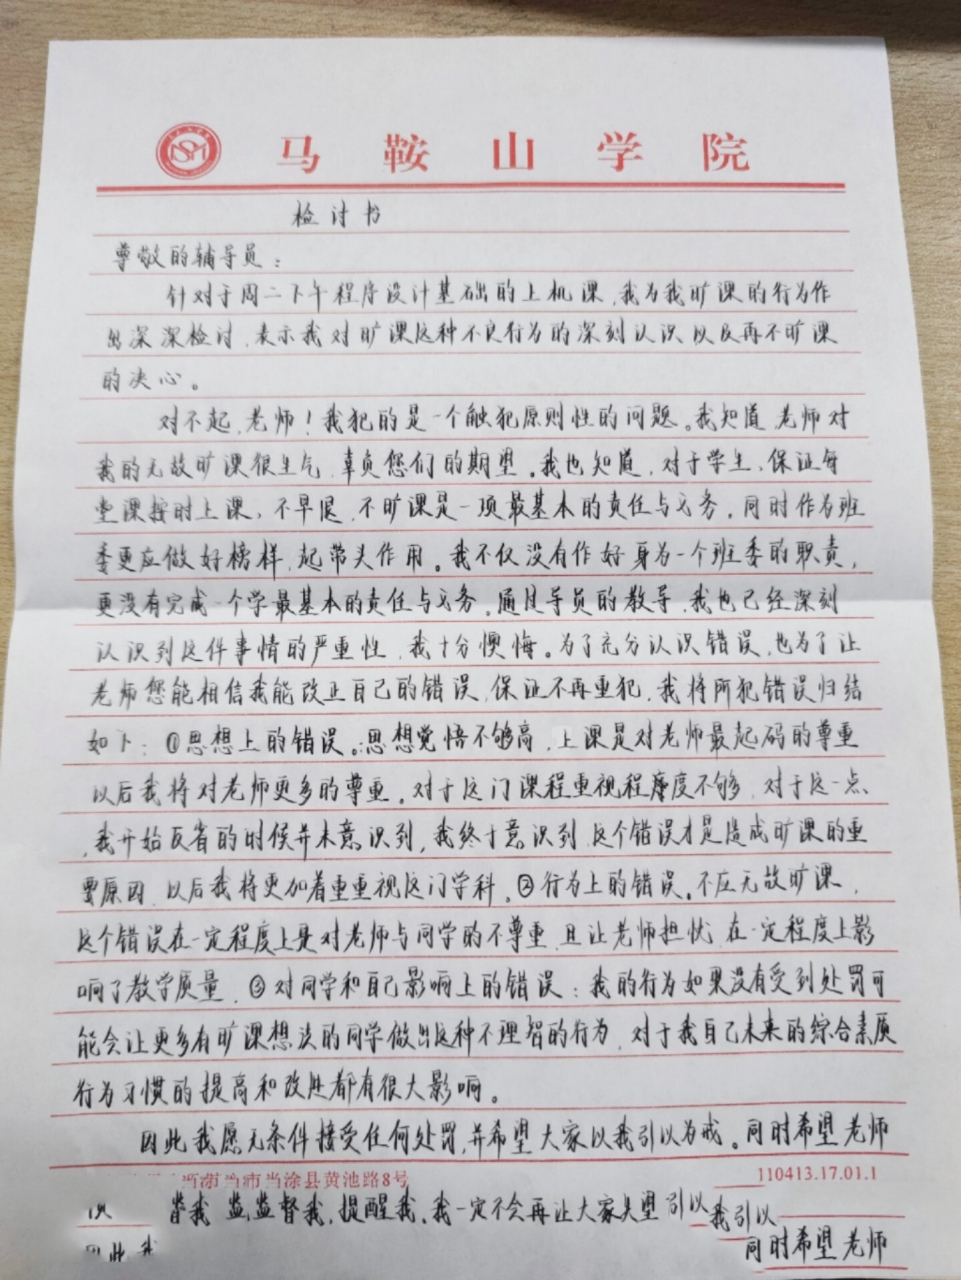 马鞍山学院
检讨书
尊敬的辅导员：
针对于周二下午程序设计基础的上机课，我为我旷课的行为作
出深深检讨，表示我对旷课这种不良行为的深刻认识以及再不旷课
的决心。
对不起，老师！我犯的是一个触犯原则性的问题。我知道老师对
我的无故旷课很生气，辜负您们的期望。我也知道，对于学生，保证每
堂课按时上课、不早退、不旷课是一项最基本的责任与义务。同时作为班
委更应做好榜样，起带头作用。我不仅没有作好身为一个班委的职责，
更没有完成一个学最基本的责任与义务。通过导员的教导，我也已经深刻
认识到这件事情的严重性，我十分懊悔。为了充分认识错误，也为了让
老师您能相信我能改正自己的错误，保证不再重犯，我将所犯错误归结
如下：①思想上的错误。思想觉悟不够高，上课是对老师最起码的尊重
以后我将对老师更多的尊重。对于这门课程重视程度不够，对于这一点、
我开始反省的时候并未意识到，我终于意识到这个错误才是造成旷课的重
要原因，以后我将更加着重重视这门学科。②行为上的错误。不应无故旷课，
这个错误在一定程度上是对老师与同学的不尊重，且让老师担忧，在一定程度上影
响了教学质量。③对同学和自己影响上的错误：我的行为如果没有受到处罚可
能会让更多有旷课想法的同学做出这种不理智的行为，对于我自己未来的综合素质
行为习惯的提高和改进都有很大影响。
因此我愿无条件接受任何处罚，并希望大家以我引以为戒。同时希望老师
市当涂县黄池路8号 110413.17.01.1
督我 监监督我，提醒我，我一定不会再让大家失望 引以我引以
因此我 同时希望老师